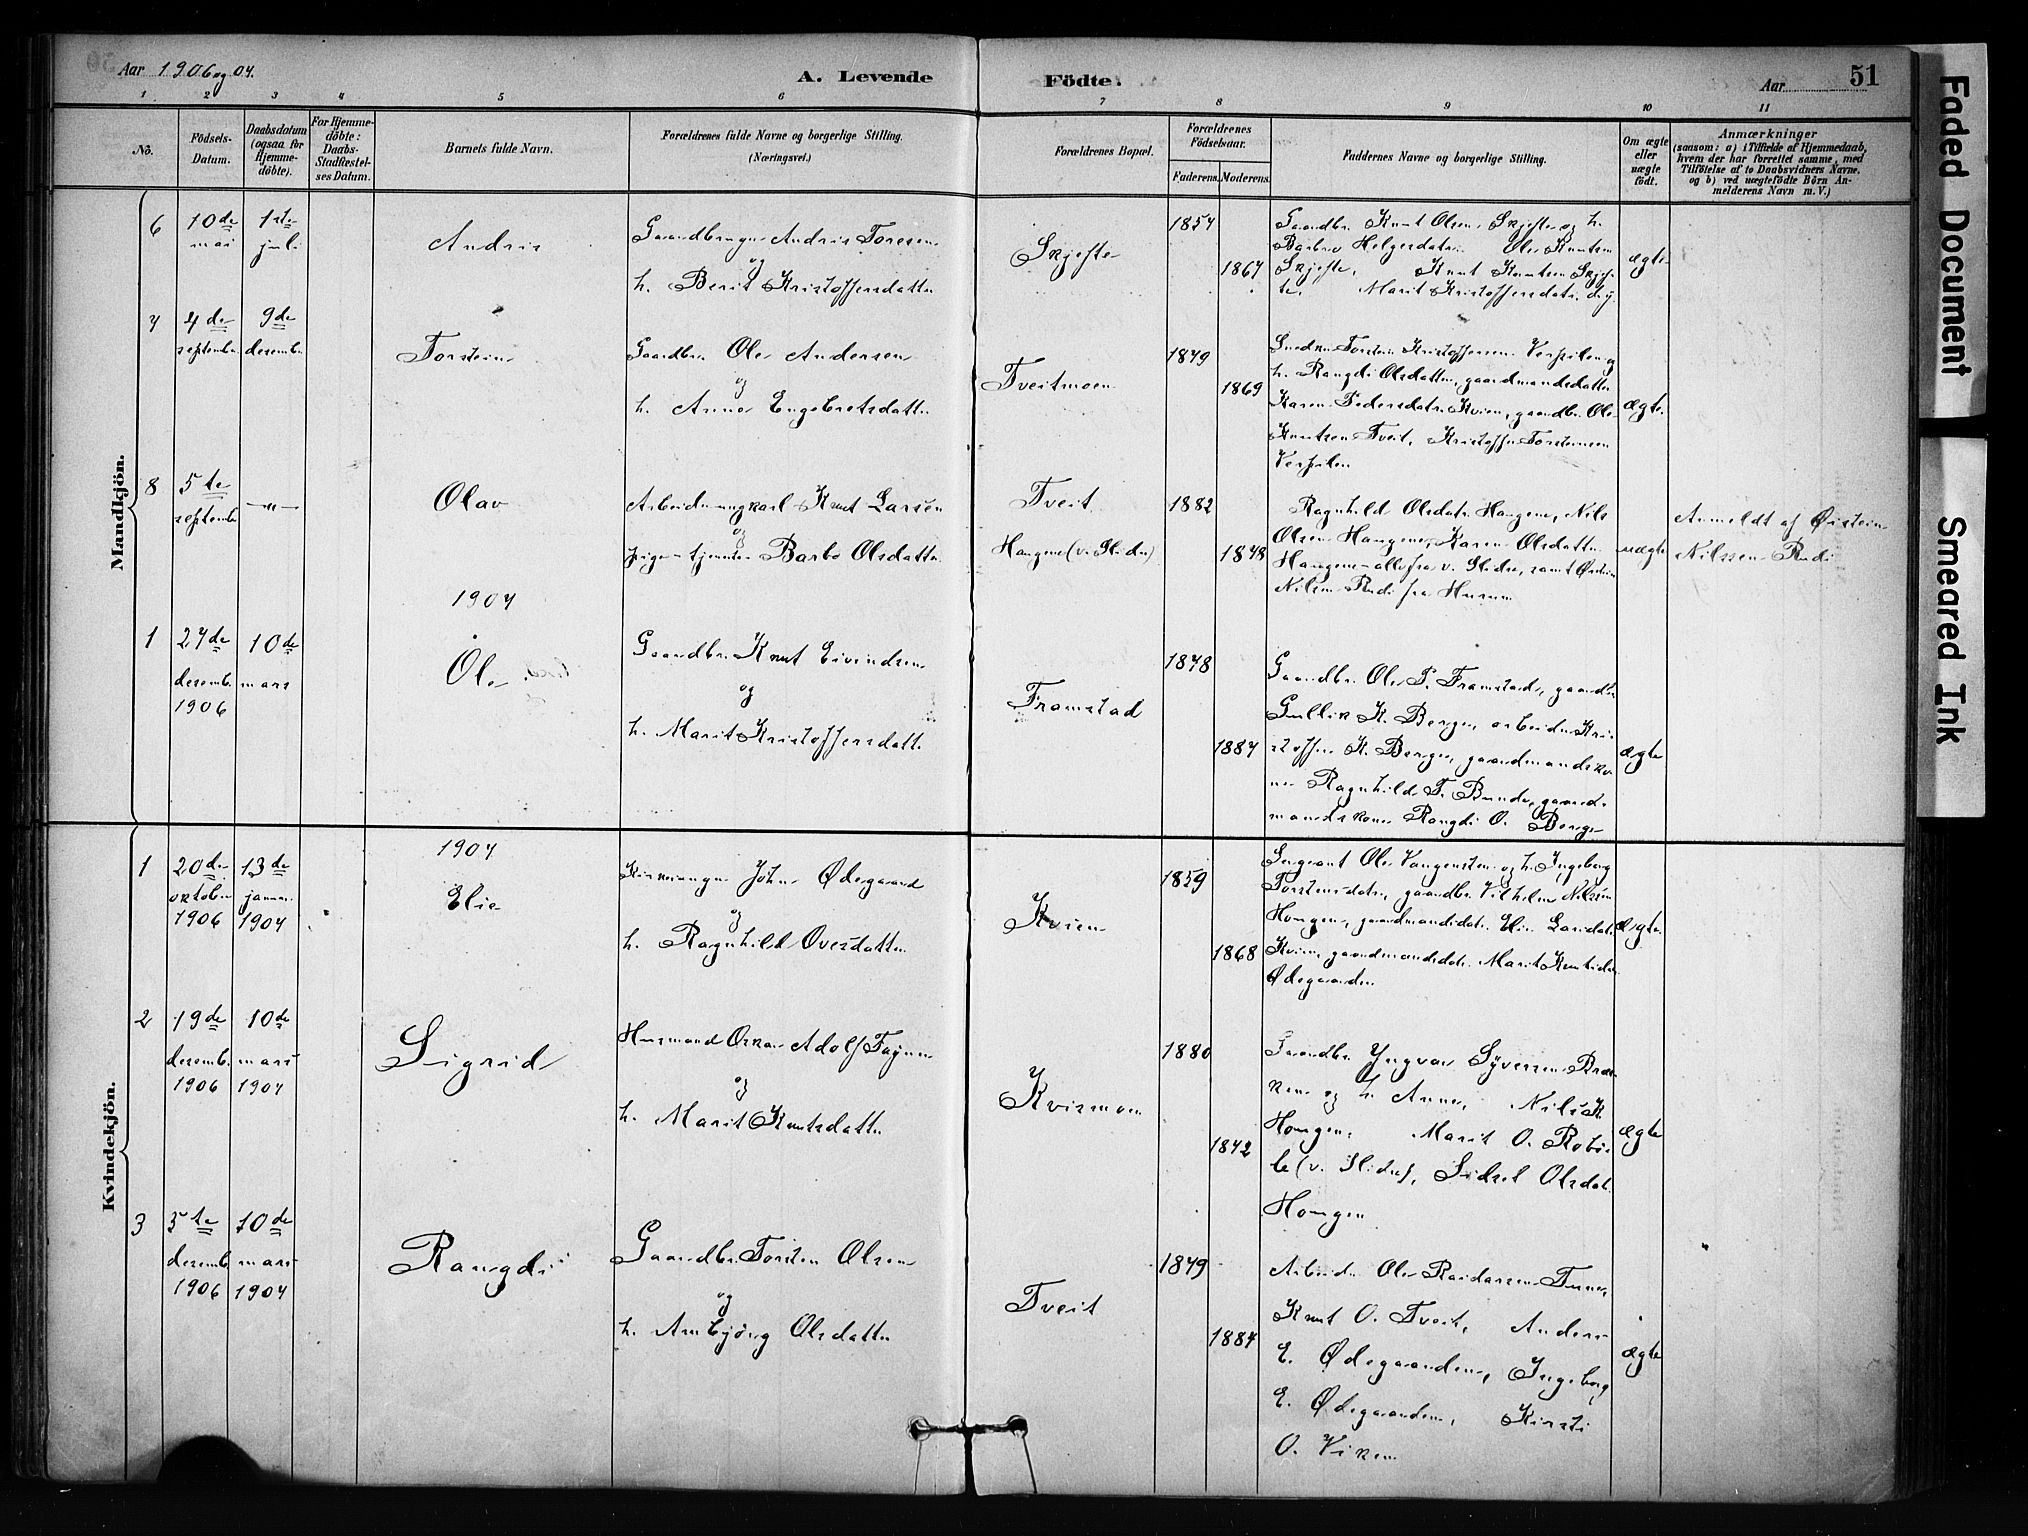 Aar 1906 og 07.
A. Levende
Födte.
Aar
51
1
2
3
4
5
6
7
8
9
10
11
No.
Födsels-
Datum.
Daabsdatum
(ogsaa for
Hjemme-
döbte).
For Hjemme-
döbte:
Daabs-
Stadfæstel-
ses Datum.
Barnets fulde Navn.
Forældrenes fulde Navne og borgerlige Stilling.
(Næringsvei.)
Forældrenes Bopæl.
Forældrenes
Födselsaar.
Faderens.
Moderens.
Faddernes Navne og borgerlige Stilling.
Om ægte
eller
uægte
födt.
Anmærkninger
(saasom: a) i Tilfælde af Hjemmedaab,
hvem der har forrettet samme, med
Tilföielse af to Daabsvidners Navne,
og b) ved uægtefödte Börn An-
melderens Navn m. V.)
Mandkjön.
6
10de
mai
1ste
juli
Andris
Gaardbruger Andris Toresen
og
h. Berit Kristoffersdatter
Skjefte
1857
1867
Gaardbr. Knut Olsen Skjefte og h.
Barbro Helgesdatr. Ole Knutsen
Skjefte, Knut Knutsen Skjef-
te, Marit Kristoffersdatr.
ægte
7
4de
septembr
9de
desembr
Torstein
Gaardbr. Ole Andersen
og
h. Anne Engebretsdatter
Tveitmoen
1879
1869
Torstein Kristoffersen
h. Rangdi Olsdatter, gaardmandsdatter
Karen Pedersdatr. Kvien, gaardbr. Ole
Knutsen Tveit, Kristoffer Torsteinsen
ægte
8
5te
septembr
—"—
Olav
Arbeider ungkarl Knut Larsen
og
pige – tjenende Barbo Olsdatter
Tveit
Haugene (v. Slidre)
1882
1878
Ragnhild Olsdatr. Haugene, Nils
Olsen Haugene, Karen Olsdatter
Haugene – alle fra v. Slidre, samt Øistein
Nilsen Rudi fra Hurum
uægte
Anmeldt af Øistein
Nilssen Rudi
1907
1
27de
desemb.
1906
10de
mars
Ole
Gaardbr. Knut Eivindsen
og
h. Marit Kristoffersdatter
Framstad
1878
1884
Gaardbr. Ole P. Framstad, gaardbr.
Gullik K. Berge, arbeider Kri-
stoffer K. Berge, gaardmandsko-
ne Ragnhild T. Bunde, gaard-
mandskone Rangdi O. Berge
ægte
Kvindekjön.
1907
1
20de
oktober
1906
13de
januar
1907
Elie
Kirkesanger John Ødegaard
og
h. Ragnhild Oversdatter
Kvien
1859
1868
Sergeant Ole Vangensten og h. Ingeborg
Torstensdatr., gaardbr. Vilhelm Nilssen
Homgen, gaardmandsdatr. Elie Larsdatr.
Kvien, gaardmandsdatr. Marit Knutsdatr.
Ødegaarden
ægte
2
19de
desemb.
1906
10de
mars
1907
Sigrid
Husmand Oskar Adolf
og
h. Marit Knutsdatter
Kvismoen
1880
1872
Gaardbr. Yngvar Syversen
og h. Anne, Nils K.
Homgen, Marit O. Robø-
le (v. Slidre), Sidsel Olsdatr.
Homgen
ægte
3
5te
desemb.
1906
10de
mars
1907
Rangdi
Gaardbr. Torsten Olsen
og
h. Ambjörg Olsdatter
Tveit
1879
1884
Arbeider Ole Reidarsen
Knut O. Tveit, Anders
E. Ødegaarden, Ingeborg
E. Ødegaarden, Kirsti
O. Viken
ægte
Faded Document
Smeared Ink